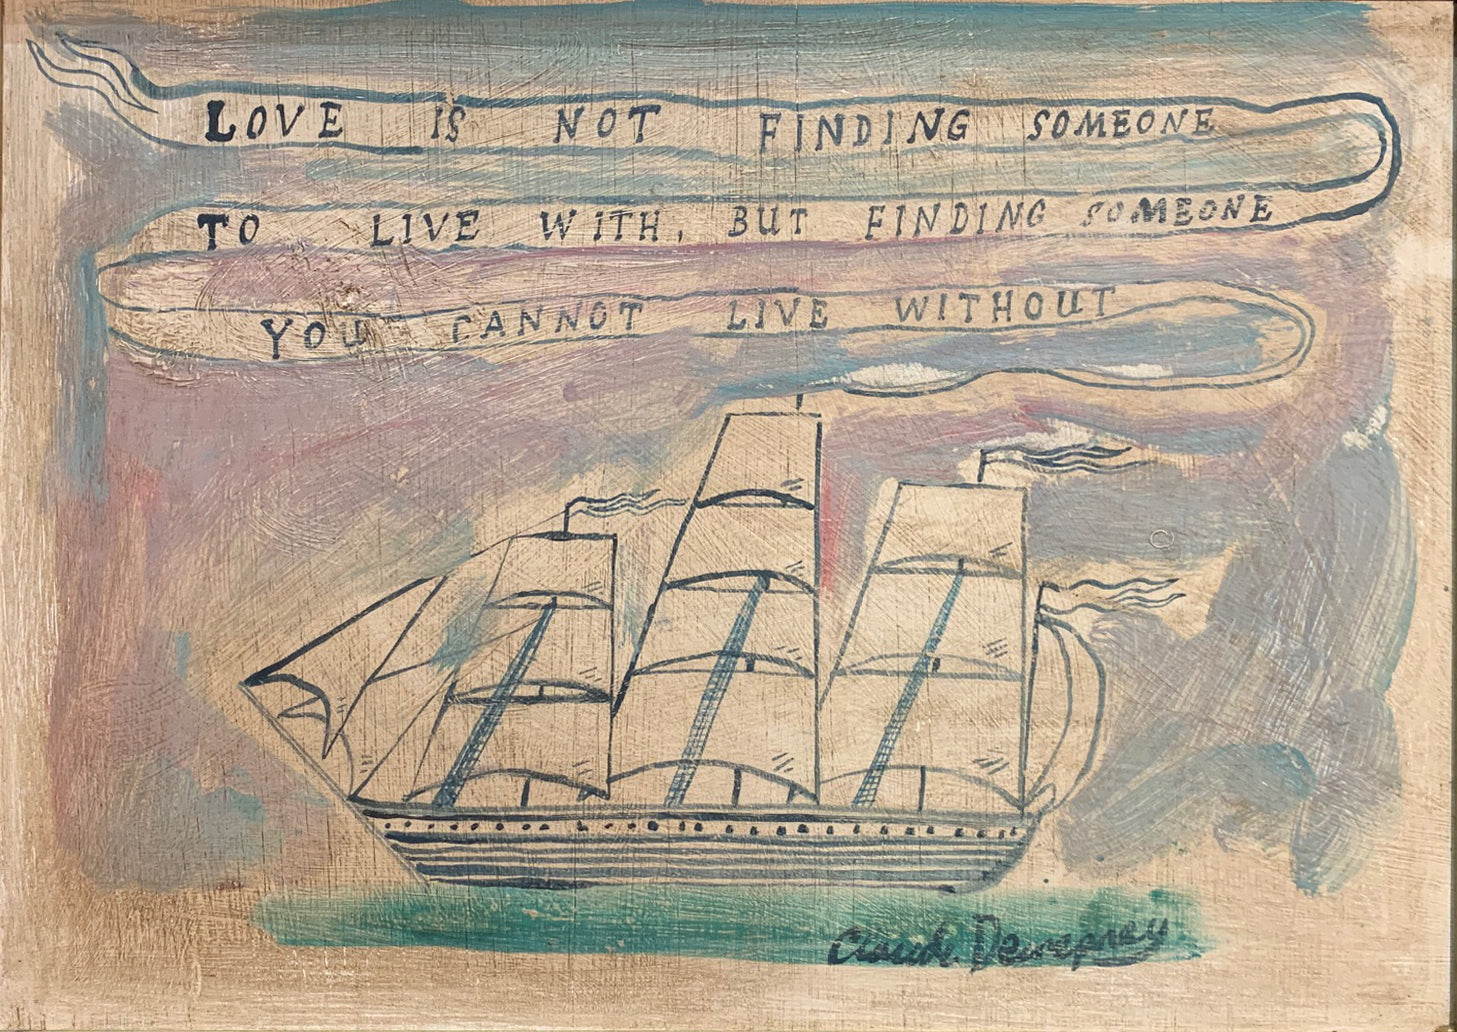 LOVE IS NOT FINDING SOMEONE
TO LIVE WITH, BUT FINDING SOMEONE
YOU CANNOT LIVE WITHOUT
Claude